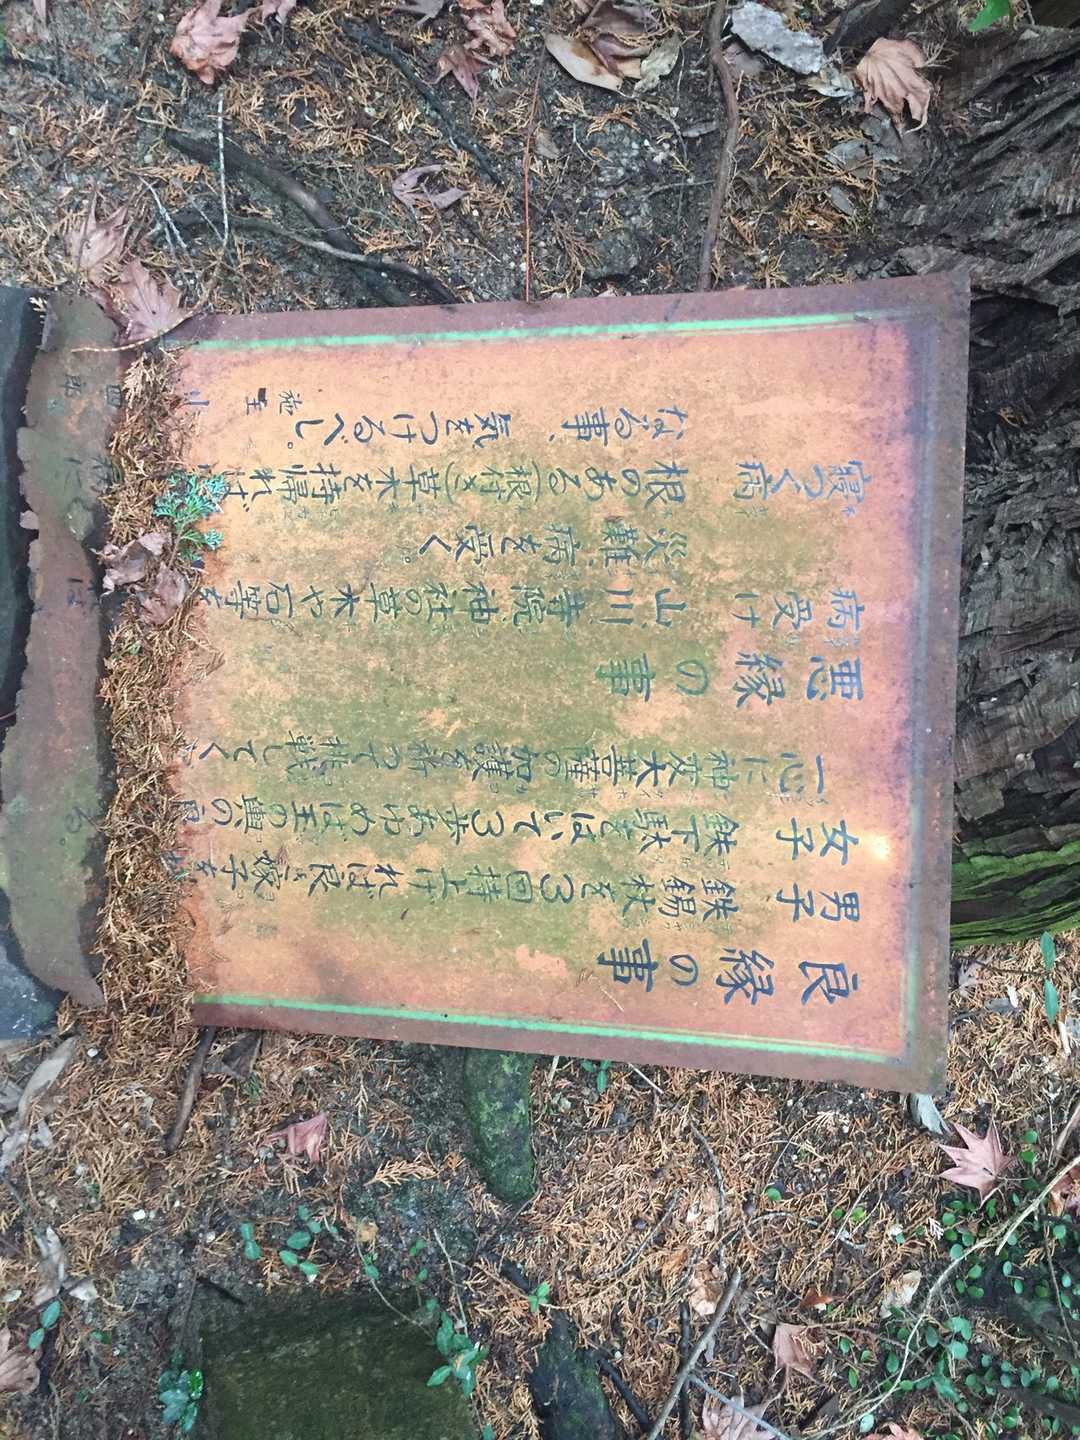 良縁の事
男子 鉄錫杖を3回持上げれば良い嫁子を
女子 鉄下駄をはいて3歩あゆめば玉の輿の
一心に神変大菩薩の加護を祈って挑戦して
悪縁の事
病受け 山川、寺院、神社の草木や石等を
災難、病を受く。
寝つく病 根のある(根付き)草木を持帰れば
なる事、気をつけるべし。
施主